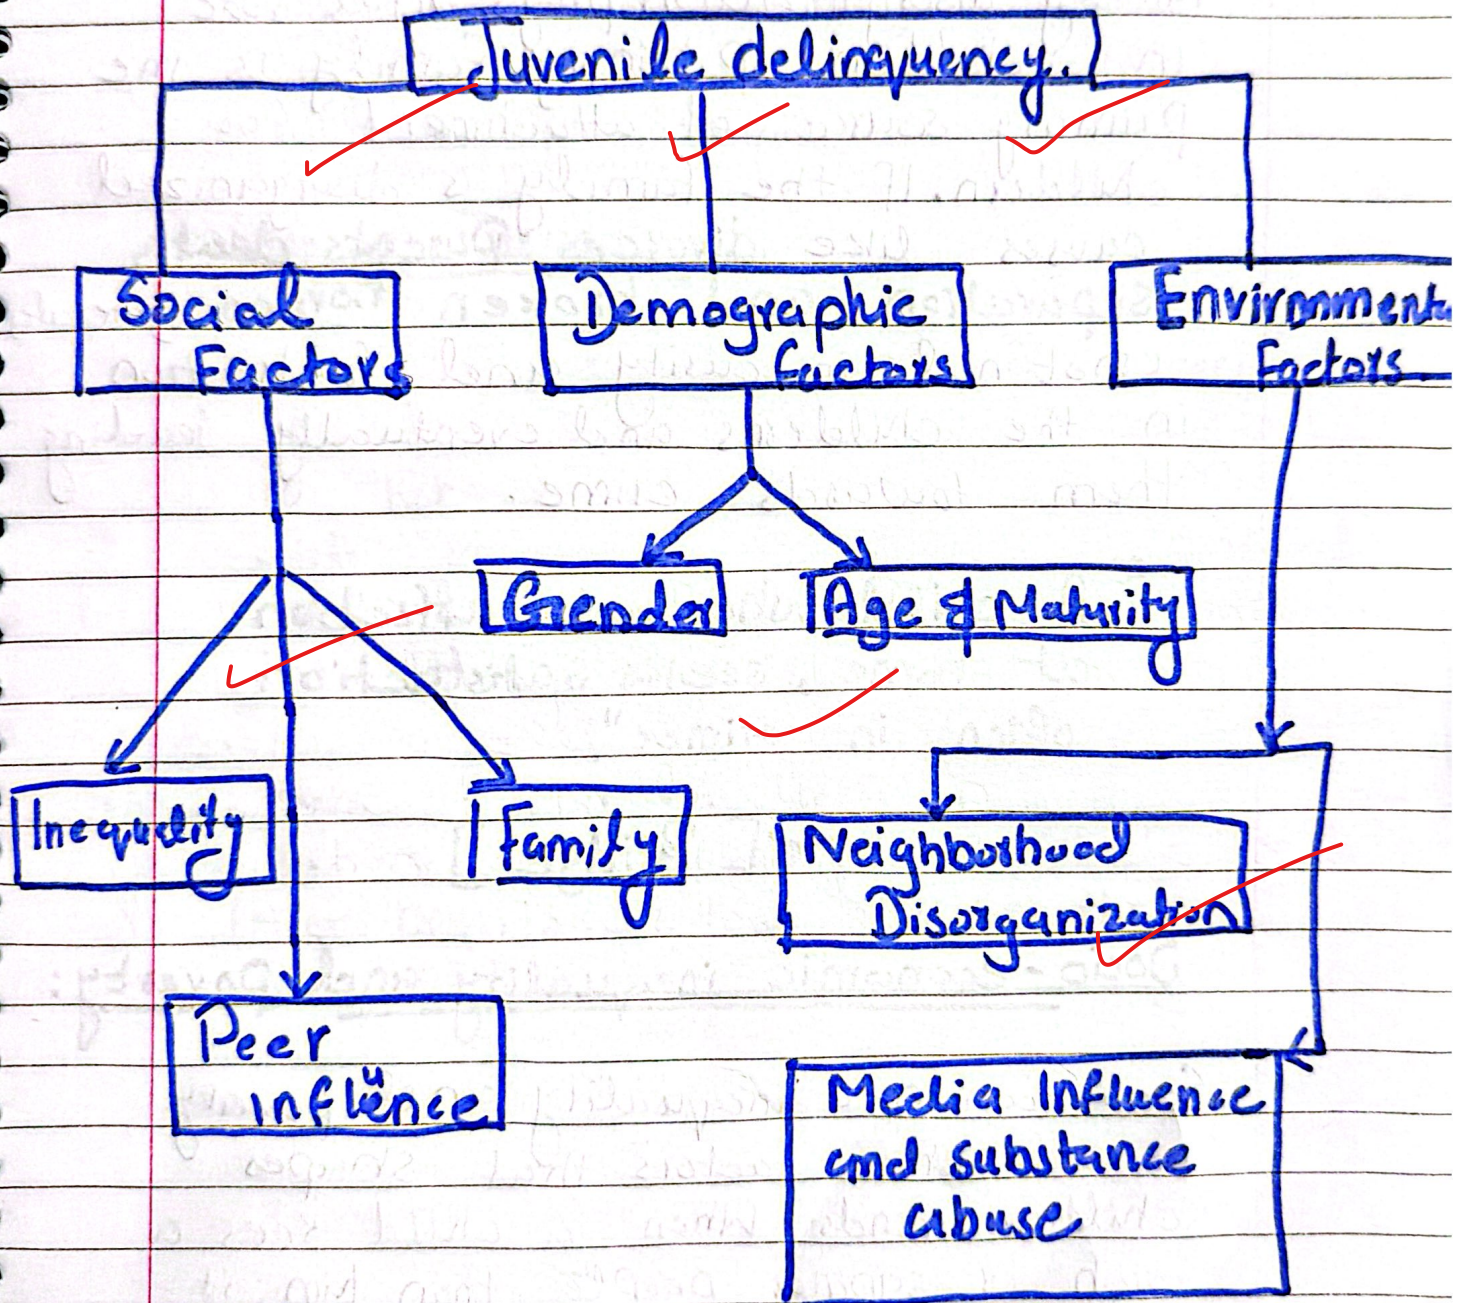 Juvenile delinquency.
Social
Factors
Demographic
factors
Environmenta
Factors
Gender
Age & Maturity
Inequality
Family
Neighborhood
Disorganization
Peer
influence
Media Influence
and substance
abuse